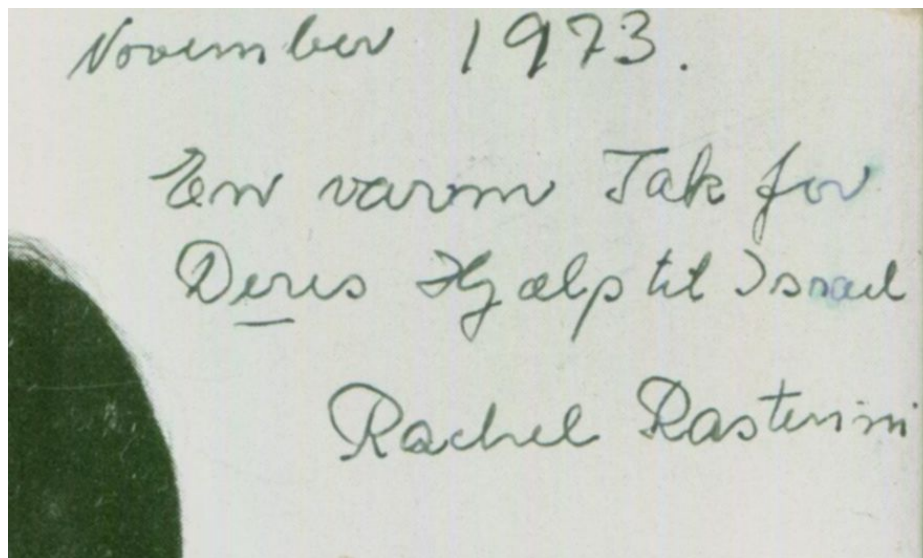 November 1973.
En varm Tak for
Deres Hjælp til Israel
Rachel Rastenni